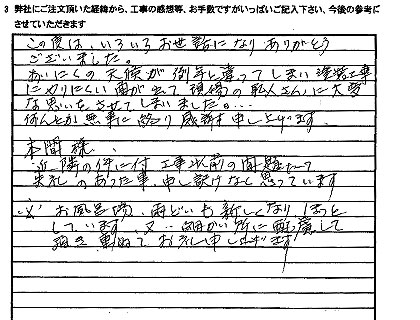 3 弊社にご注文頂いた経緯から、工事の感想等、お手数ですがいっぱいご記入下さい、今後の参考に
させていただきます
この度は、いろいろお世話になりありがとう
ございました。
おいにくの天候が例年と違ってしまい塗装工事
にやりにくい面が出て現場の職人さんに大変
な思いをさせてしまいました。...
何んとか無事に終り感謝申し上げます。
本間様
近隣の件に付 工事以前の問題
失礼のあった事、申し訳けなく思っています
お風呂場、雨どいも新しくなりほっと
しています 又、細かい所に配慮して
頂き重ねてお礼申し上げます